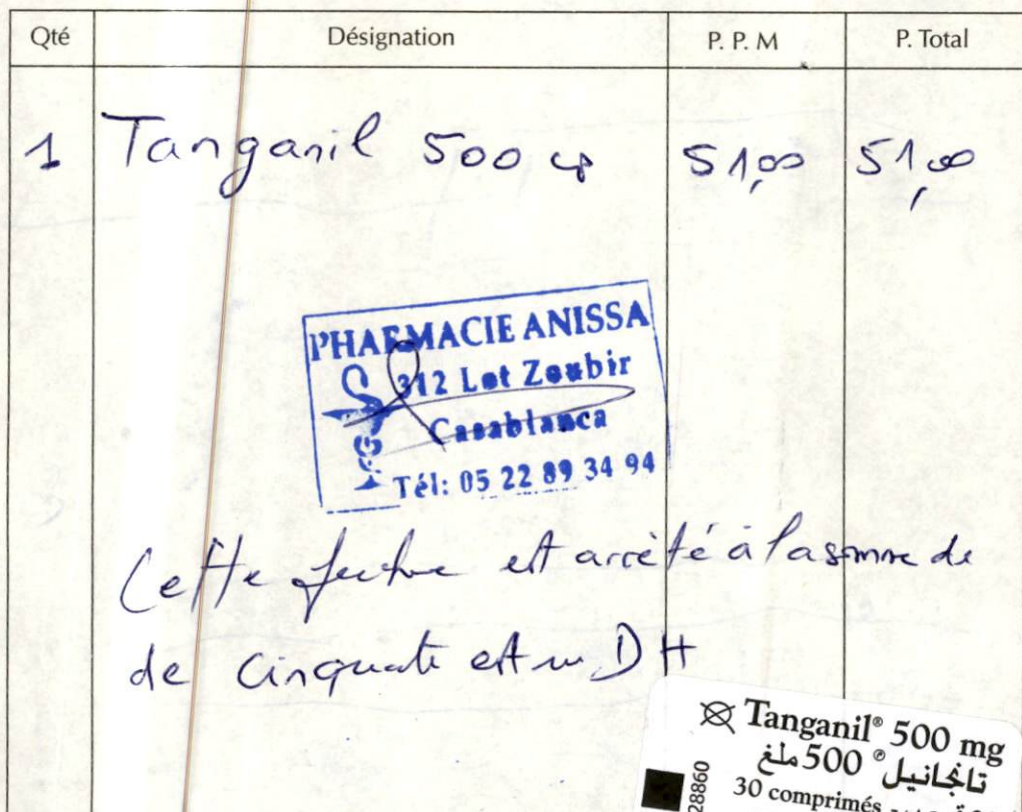 Qté Désignation P. P. M P. Total
1 Tanganil 500 cp 51,00 51,00
PHARMACIE ANISSA
312 Lot Zoubir
Casablanca
Tél: 05 22 89 34 94
Cette facture est arrêté à la somme de
de cinquante et un DH
Tanganil® 500 mg
تانجانيل® 500 ملغ
30 comprimés
28860